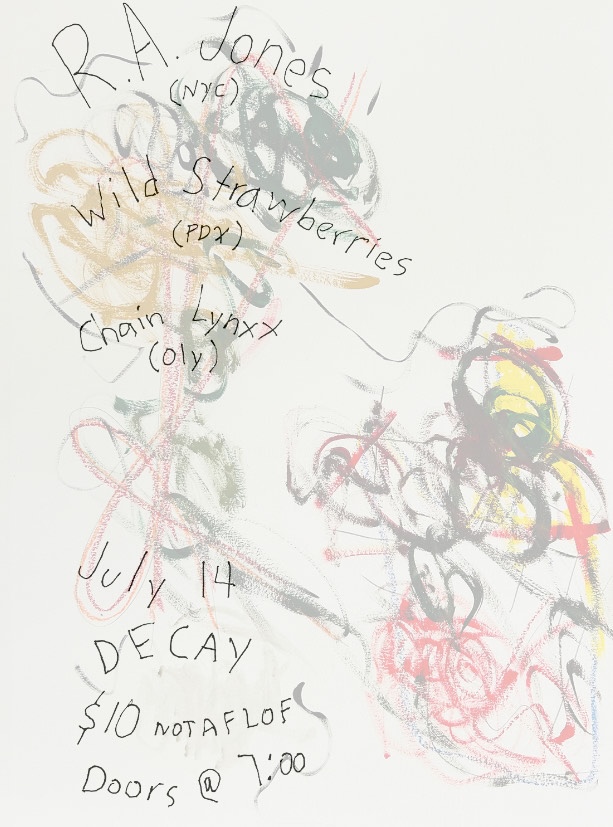 R.A. Jones
(NYC)
Wild Strawberries
(PDX)
Chain Lynxx
(Oly)
July 14
DECAY
$10 NOTAFLOF
Doors @ 7:00